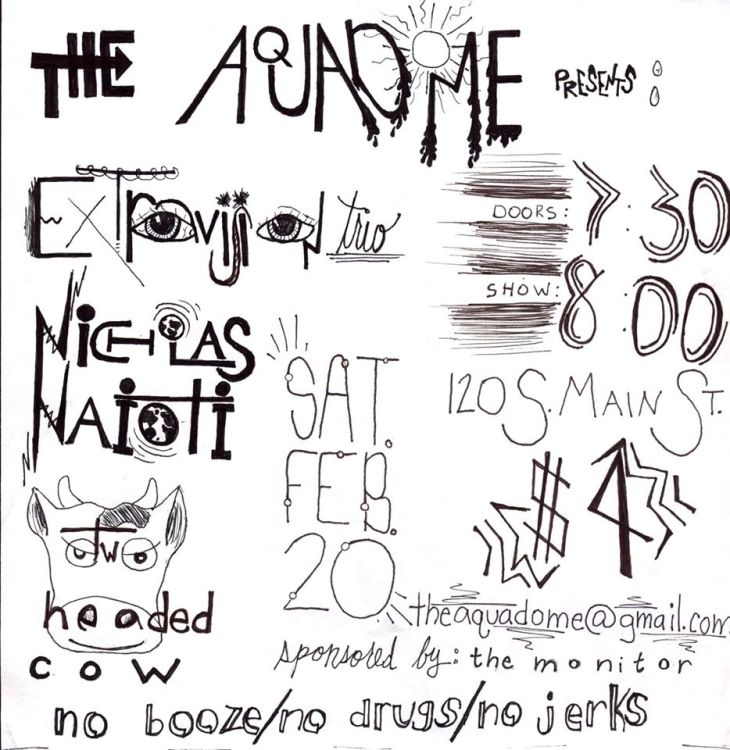 THE AQUADOME PRESENTS:
ExTravision trio
DOORS: 7:30
SHOW: 8:00
NICHOLAS
NAIOTI
SAT.
FEB.
20
120 S. MAIN ST.
$4
two
headed
cow
theaquadome@gmail.com
sponsored by: the monitor
no booze/no drugs/no jerks